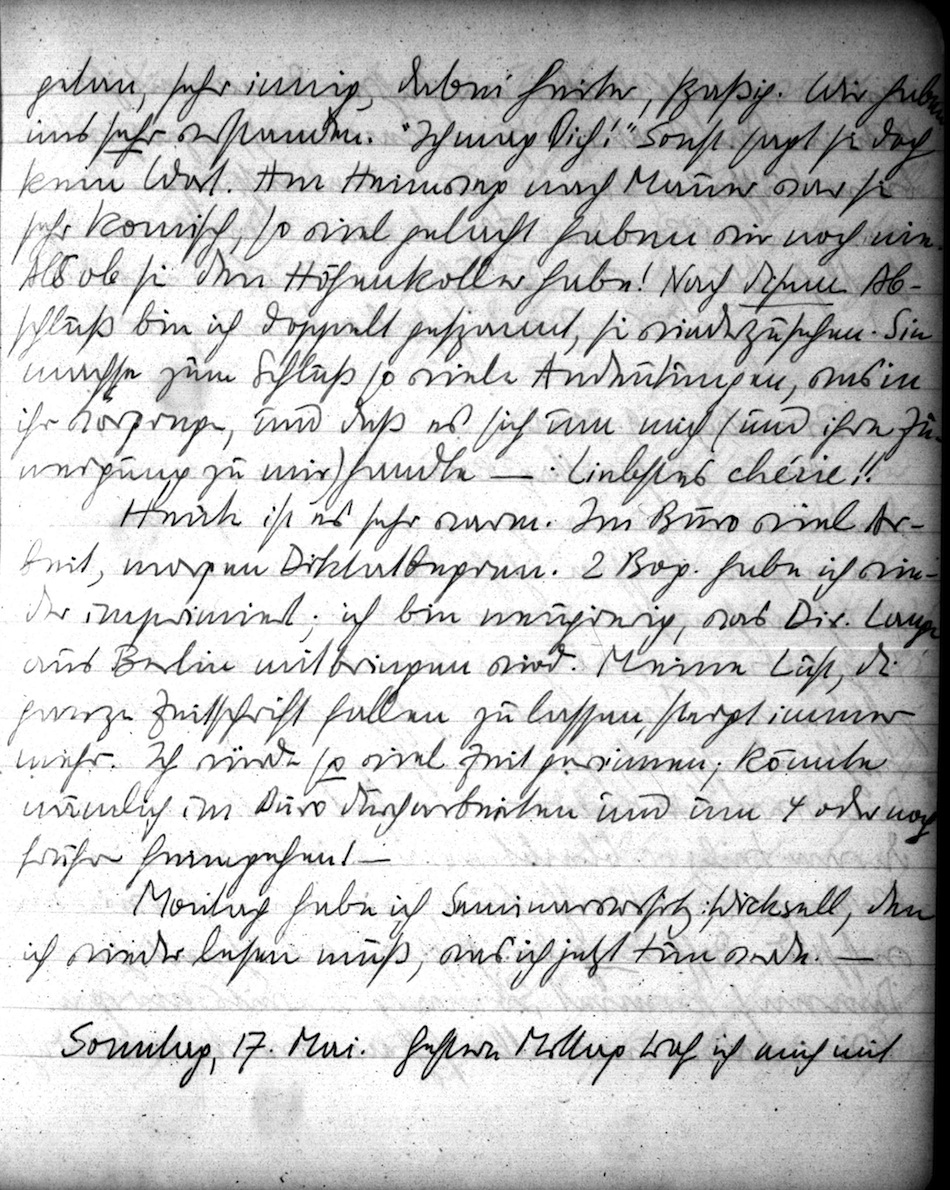 getan, sehr innig, dabei heiter, spaßig. Wir haben
uns sehr verstanden. "Ich mag Dich!" Sonst sagt sie doch
kein Wort. Am Heimweg nach Mauer war sie
sehr komisch, so viel gelacht haben wir noch nie
Als ob sie den Höhenkoller habe! Nach diesem Ab-
schluß bin ich doppelt gespannt, sie wiederzusehen. Sie
machte zum Schluß so viele Andeutungen, was in
ihr vorgehe, und daß es sich um mich (und ihre Zu-
neigung zu mir) handle — : Liebstes chérie!!
Heute ist es sehr warm. Im Büro viel Ar-
beit, morgen Diktatbeginn. 2 Bog. habe ich wie-
der imprimiert; ich bin neugierig, was Dir. Lange
aus Berlin mitbringen wird. Meine Lust, die
ganze Zeitschrift fallen zu lassen, steigt immer
mehr. Ich würde so viel Zeit gewinnen; könnte
nämlich im Büro durcharbeiten und um 4 oder noch
früher heimgehen! —
Montag habe ich Seminarvorsitz: Wicksell, den
ich wieder lesen muß, was ich jetzt tun werde. —
Sonntag, 17. Mai. Gestern Mittag traf ich mich mit